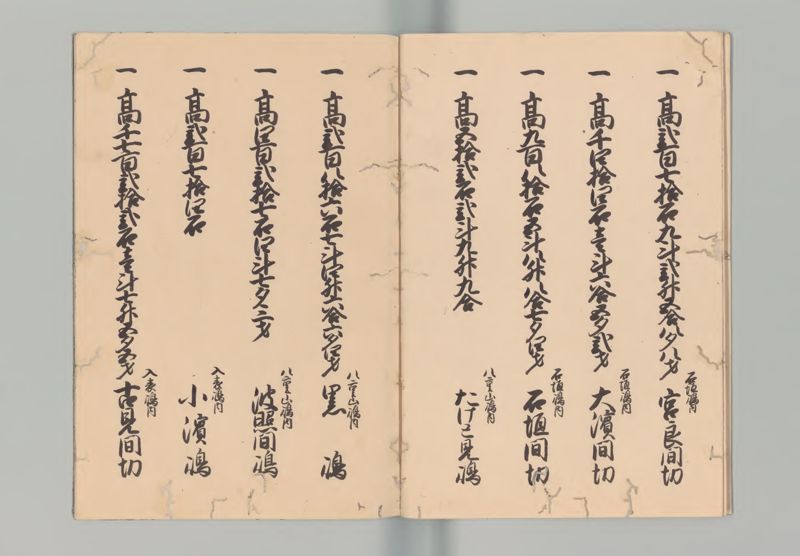 一 高弐百七拾石九斗弐升五合八夕八才 石垣嶋内 宮良間切
一 高千四拾四石壱斗六合五夕弐才 石垣嶋内 大濱間切
一 高九百八拾石五斗八升八合七夕四才 石垣嶋内 石垣間切
一 高五拾弐石弐斗九升九合 八重山嶋内 たけとみ嶋
一 高弐百八拾六石七斗四升六合六夕四才 八重山嶋内 黒嶋
一 高四百弐拾七石四斗七夕二才 八重山嶋内 波照間嶋
一 高弐百七拾四石 入表嶋内 小濱嶋
一 高千七百弐拾弐石壱斗七升五夕五才 入表嶋内 古見間切